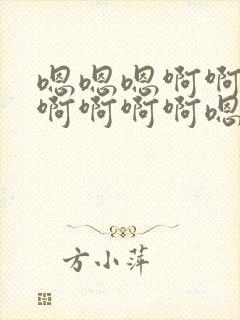 嗯嗯嗯啊啊
啊啊啊啊嗯
方小萍